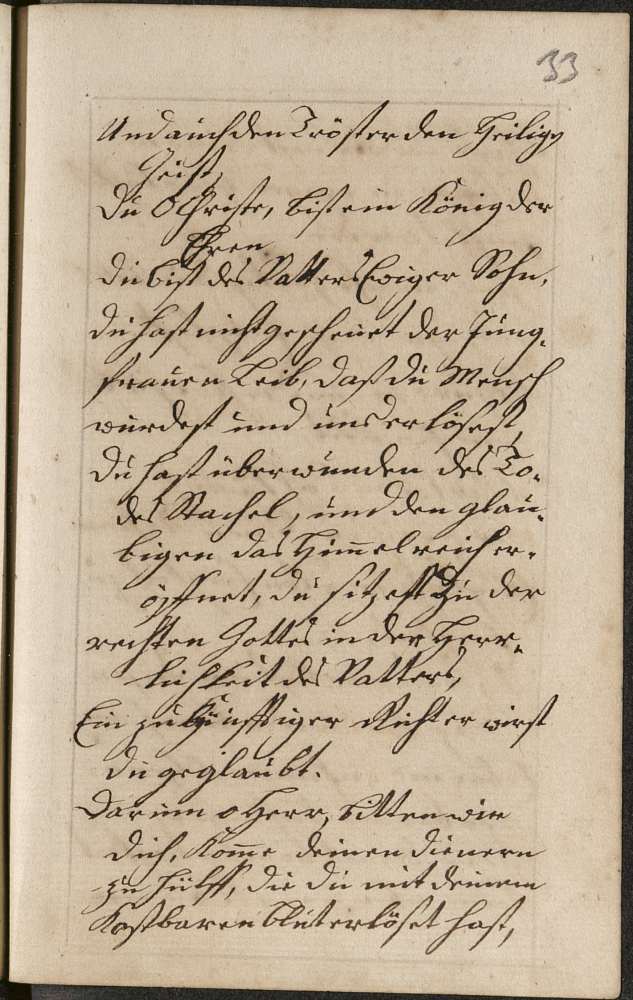 33
Und auch den Tröster den Heiligen
Geist,
Du O Christe, bist ein König der
Ehren
Du bist des Vatters Ewiger Sohn,
du hast nicht gescheuet der Jung-
frauen Leib, daß du Mensch
wurdest und uns erlösest,
du hast überwunden des To-
des Stachel, und den glau-
bigen das Himelreich er-
öffnet, du sitzest zu der
rechten Gottes in der Herr-
lichkeit des Vatters,
Ein zukünfftiger Richter wirst
du geglaubt.
Darum o Herr, bitten wir
dich, Kome deinen dienern
zu hülff, die du mit deinem
Kostbaren blut erlöset hast,